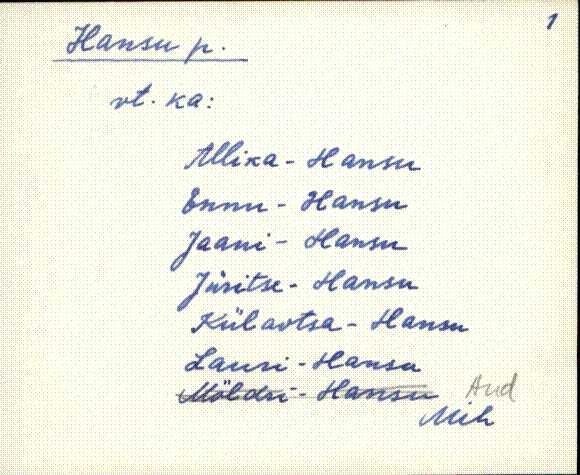 1
Hansu p.
vt. ka:
Allika - Hansu
Ennu - Hansu
Jaani - Hansu
Jüritse - Hansu
Külaotsa - Hansu
Lauri - Hansu
Möldri - Hansu Aud
Mih